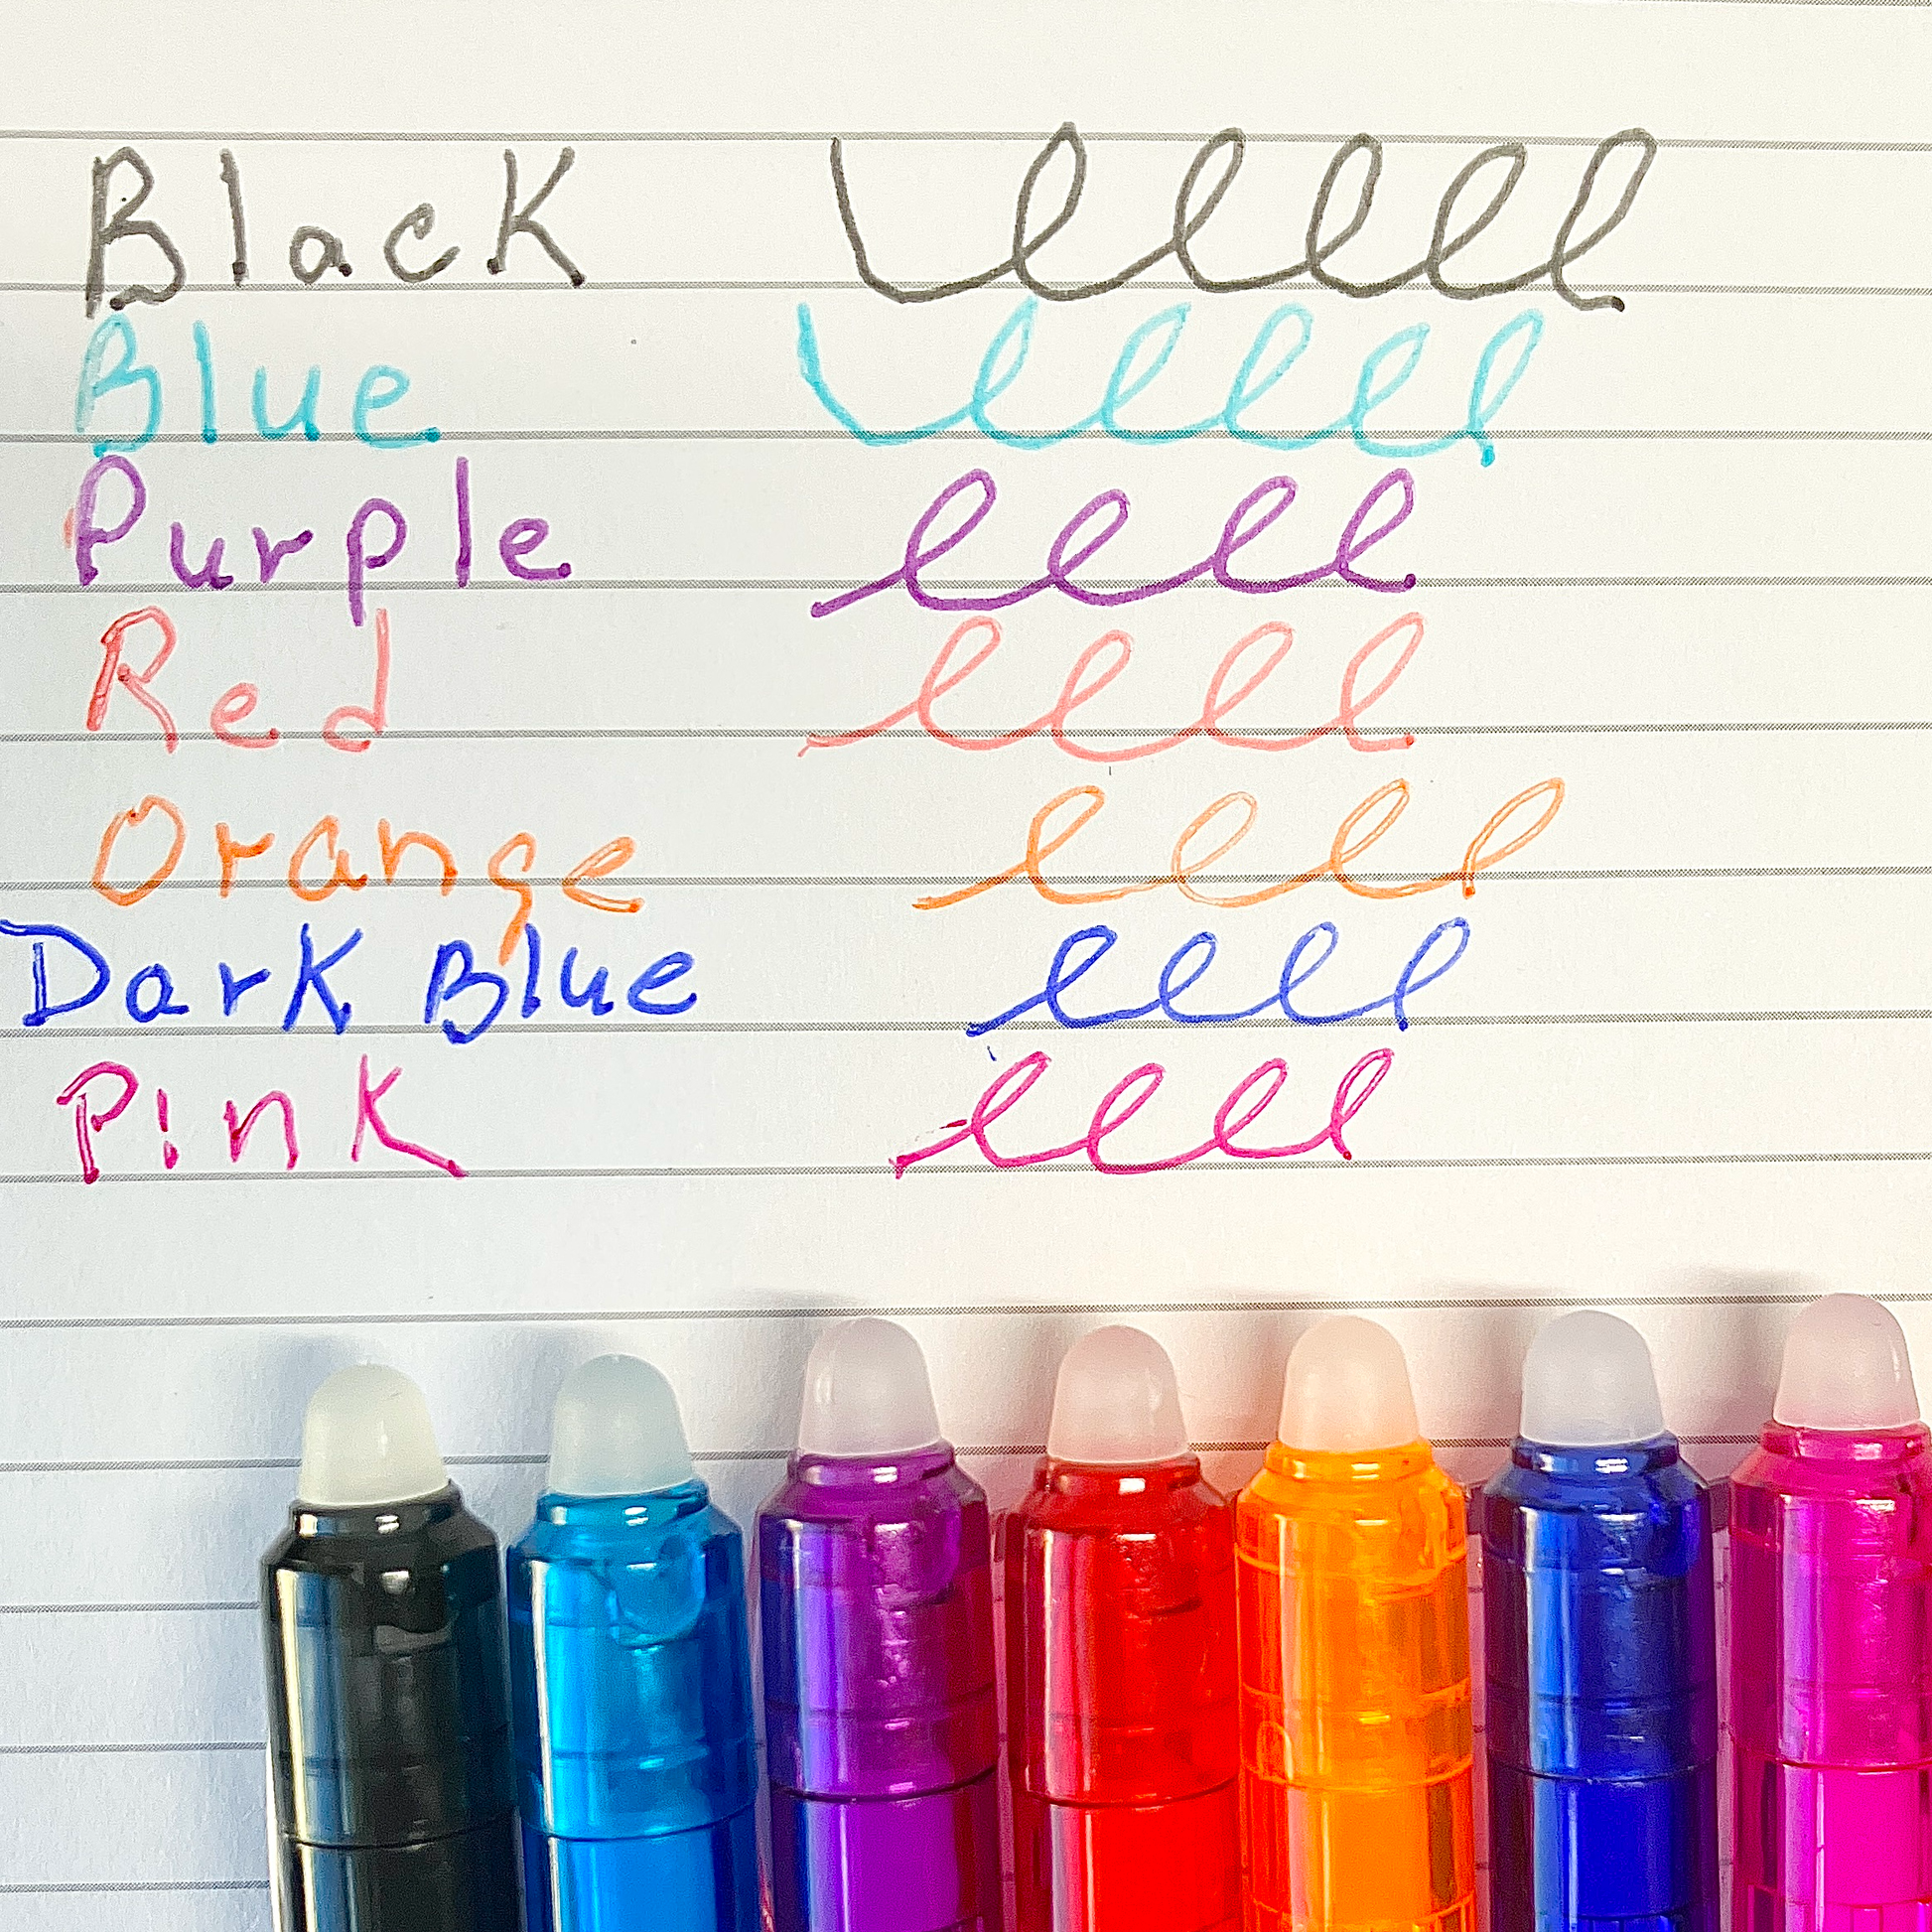 Black
Blue
Purple
Red
Orange
Dark Blue
Pink